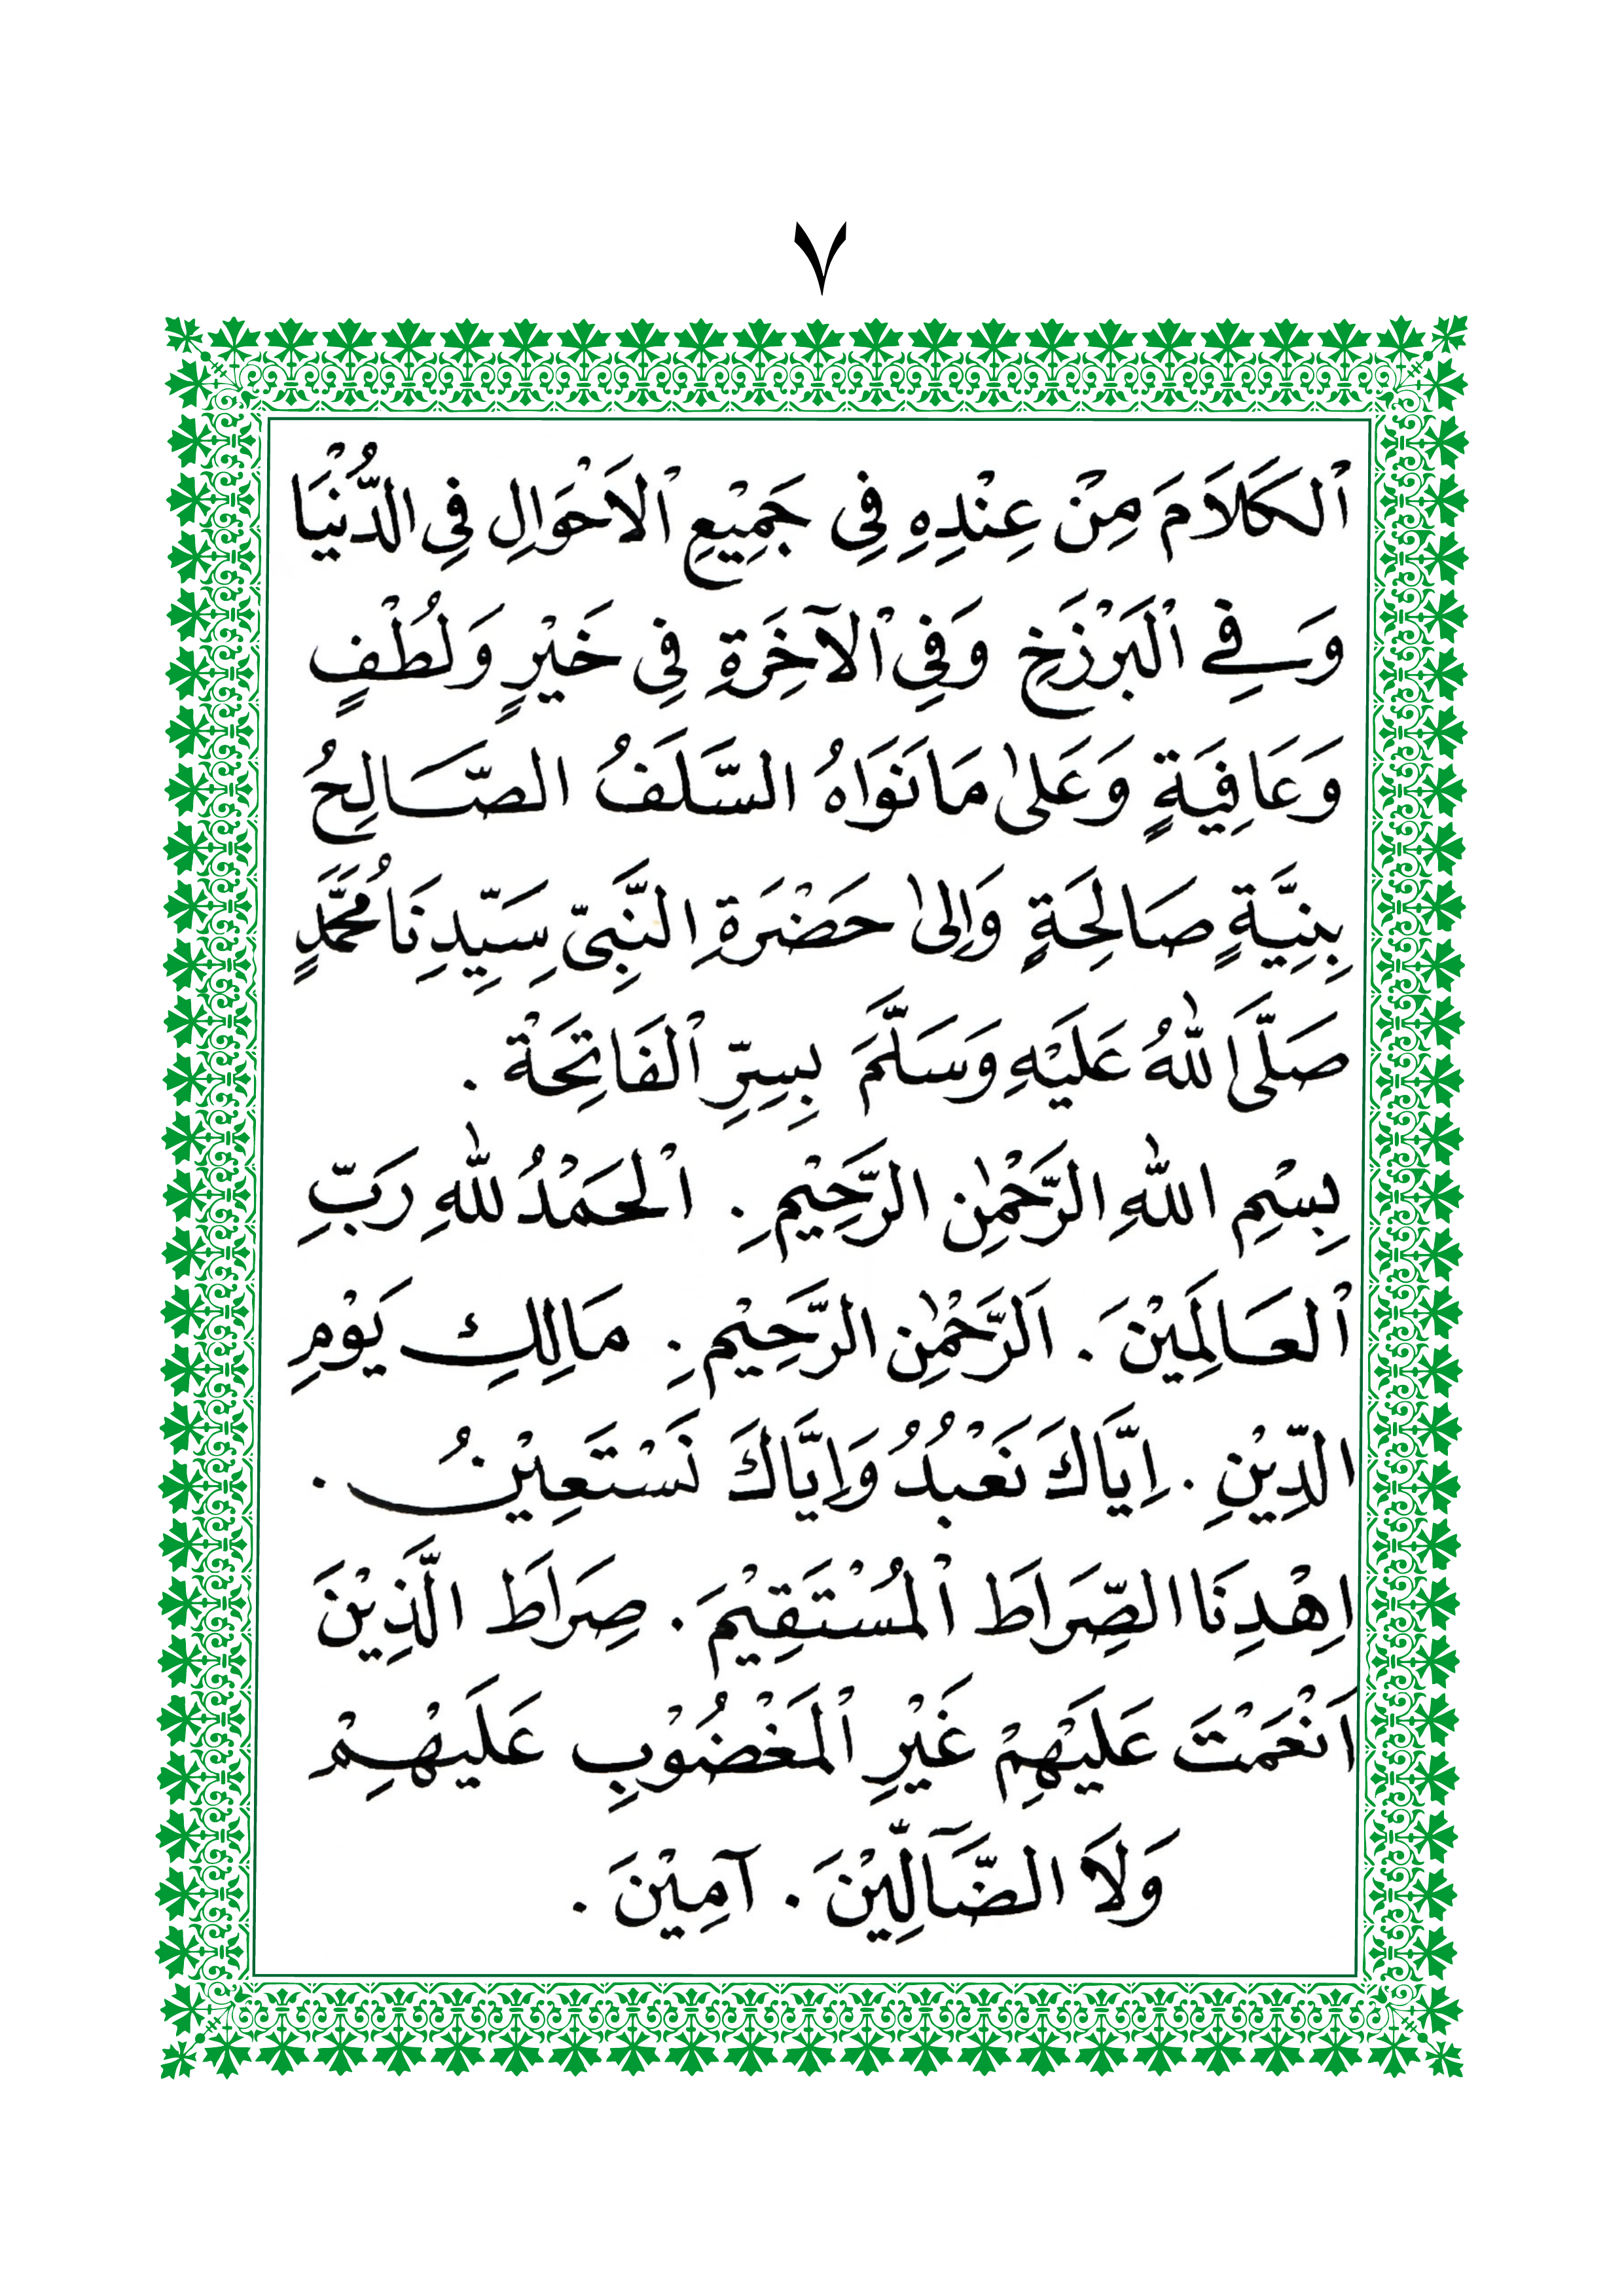 ٧
اْلكَلَامَ مِنْ عِنْدِهِ فِى جَمِيْعِ اْلاَحْوَالِ فِى الدُّنْيَا
وَفِي اْلبَرْزَخِ وَفِى اْلآخِرَةِ فِى خَيْرٍ وَلُطْفٍ
وَعَافِيَةٍ وَعَلىٰ مَانَوَاهُ السَّلَفُ الصَّالِحُ
بِنِيَّةٍ صَالِحَةٍ وَاِلىٰ حَضْرَةِ النَّبِىِّ سَيِّدِنَا مُحَمَّدٍ
صَلَّى اللهُ عَلَيْهِ وَسَلَّمَ بِسِرِّ اْلفَاتِحَةْ .
بِسْمِ اللهِ الرَّحْمٰنِ الرَّحِيْمِ . اْلحَمْدُ لِلّٰهِ رَبِّ
اْلعَالَمِيْنَ . اَلرَّحْمٰنِ الرَّحِيْمِ . مَالِكِ يَوْمِ
الدِّيْنِ . اِيَّاكَ نَعْبُدُ وَاِيَّاكَ نَسْتَعِيْنُ .
اِهْدِنَا الصِّرَاطَ اْلمُسْتَقِيْمَ . صِرَاطَ الَّذِيْنَ
اَنْعَمْتَ عَلَيْهِمْ غَيْرِ اْلمَغْضُوْبِ عَلَيْهِمْ
وَلَا الضَّآلِّيْنَ . آمِيْنَ .